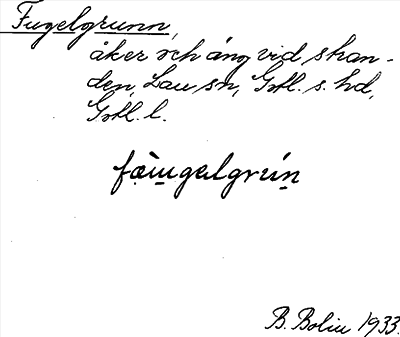 Fugelgrunn,
åker och äng vid stran-
den, Lau sn, Gotl. s. hd,
Gotl. l.
fæ̀ugalgrún
B. Bolin 1933.